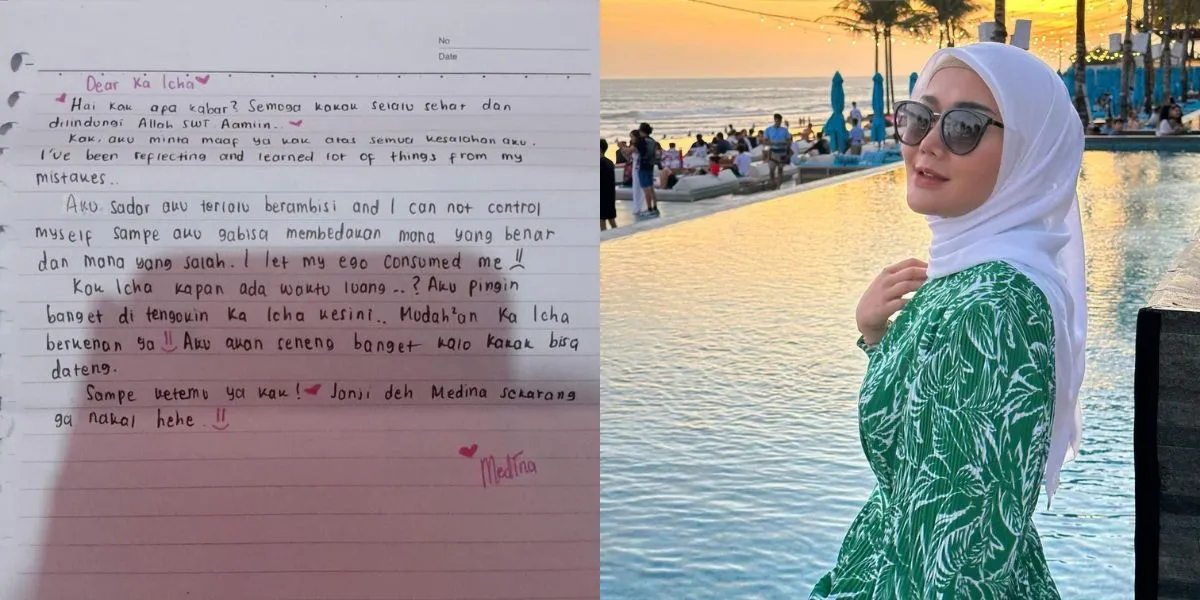 No
Date
Dear Ka Icha
Hai Kak apa kabar? Semoga kakak selalu sehat dan
dilindungi Allah SWT Aamiin..
Kak, aku minta maaf ya kak atas semua kesalahan aku.
I've been reflecting and learned lot of things from my
mistakes..
Aku sadar aku terlalu berambisi and I can not control
myself sampe aku gabisa membedakan mana yang benar
dan mana yang salah. I let my ego consumed me !!
Kak Icha kapan ada waktu luang..? Aku pingin
banget di tengokin Ka Icha kesini.. Mudah²an Ka Icha
berkenan ya !! Aku akan seneng banget kalo kakak bisa
dateng.
Sampe ketemu ya kak! Janji deh Medina sekarang
ga nakal hehe !!
Medina